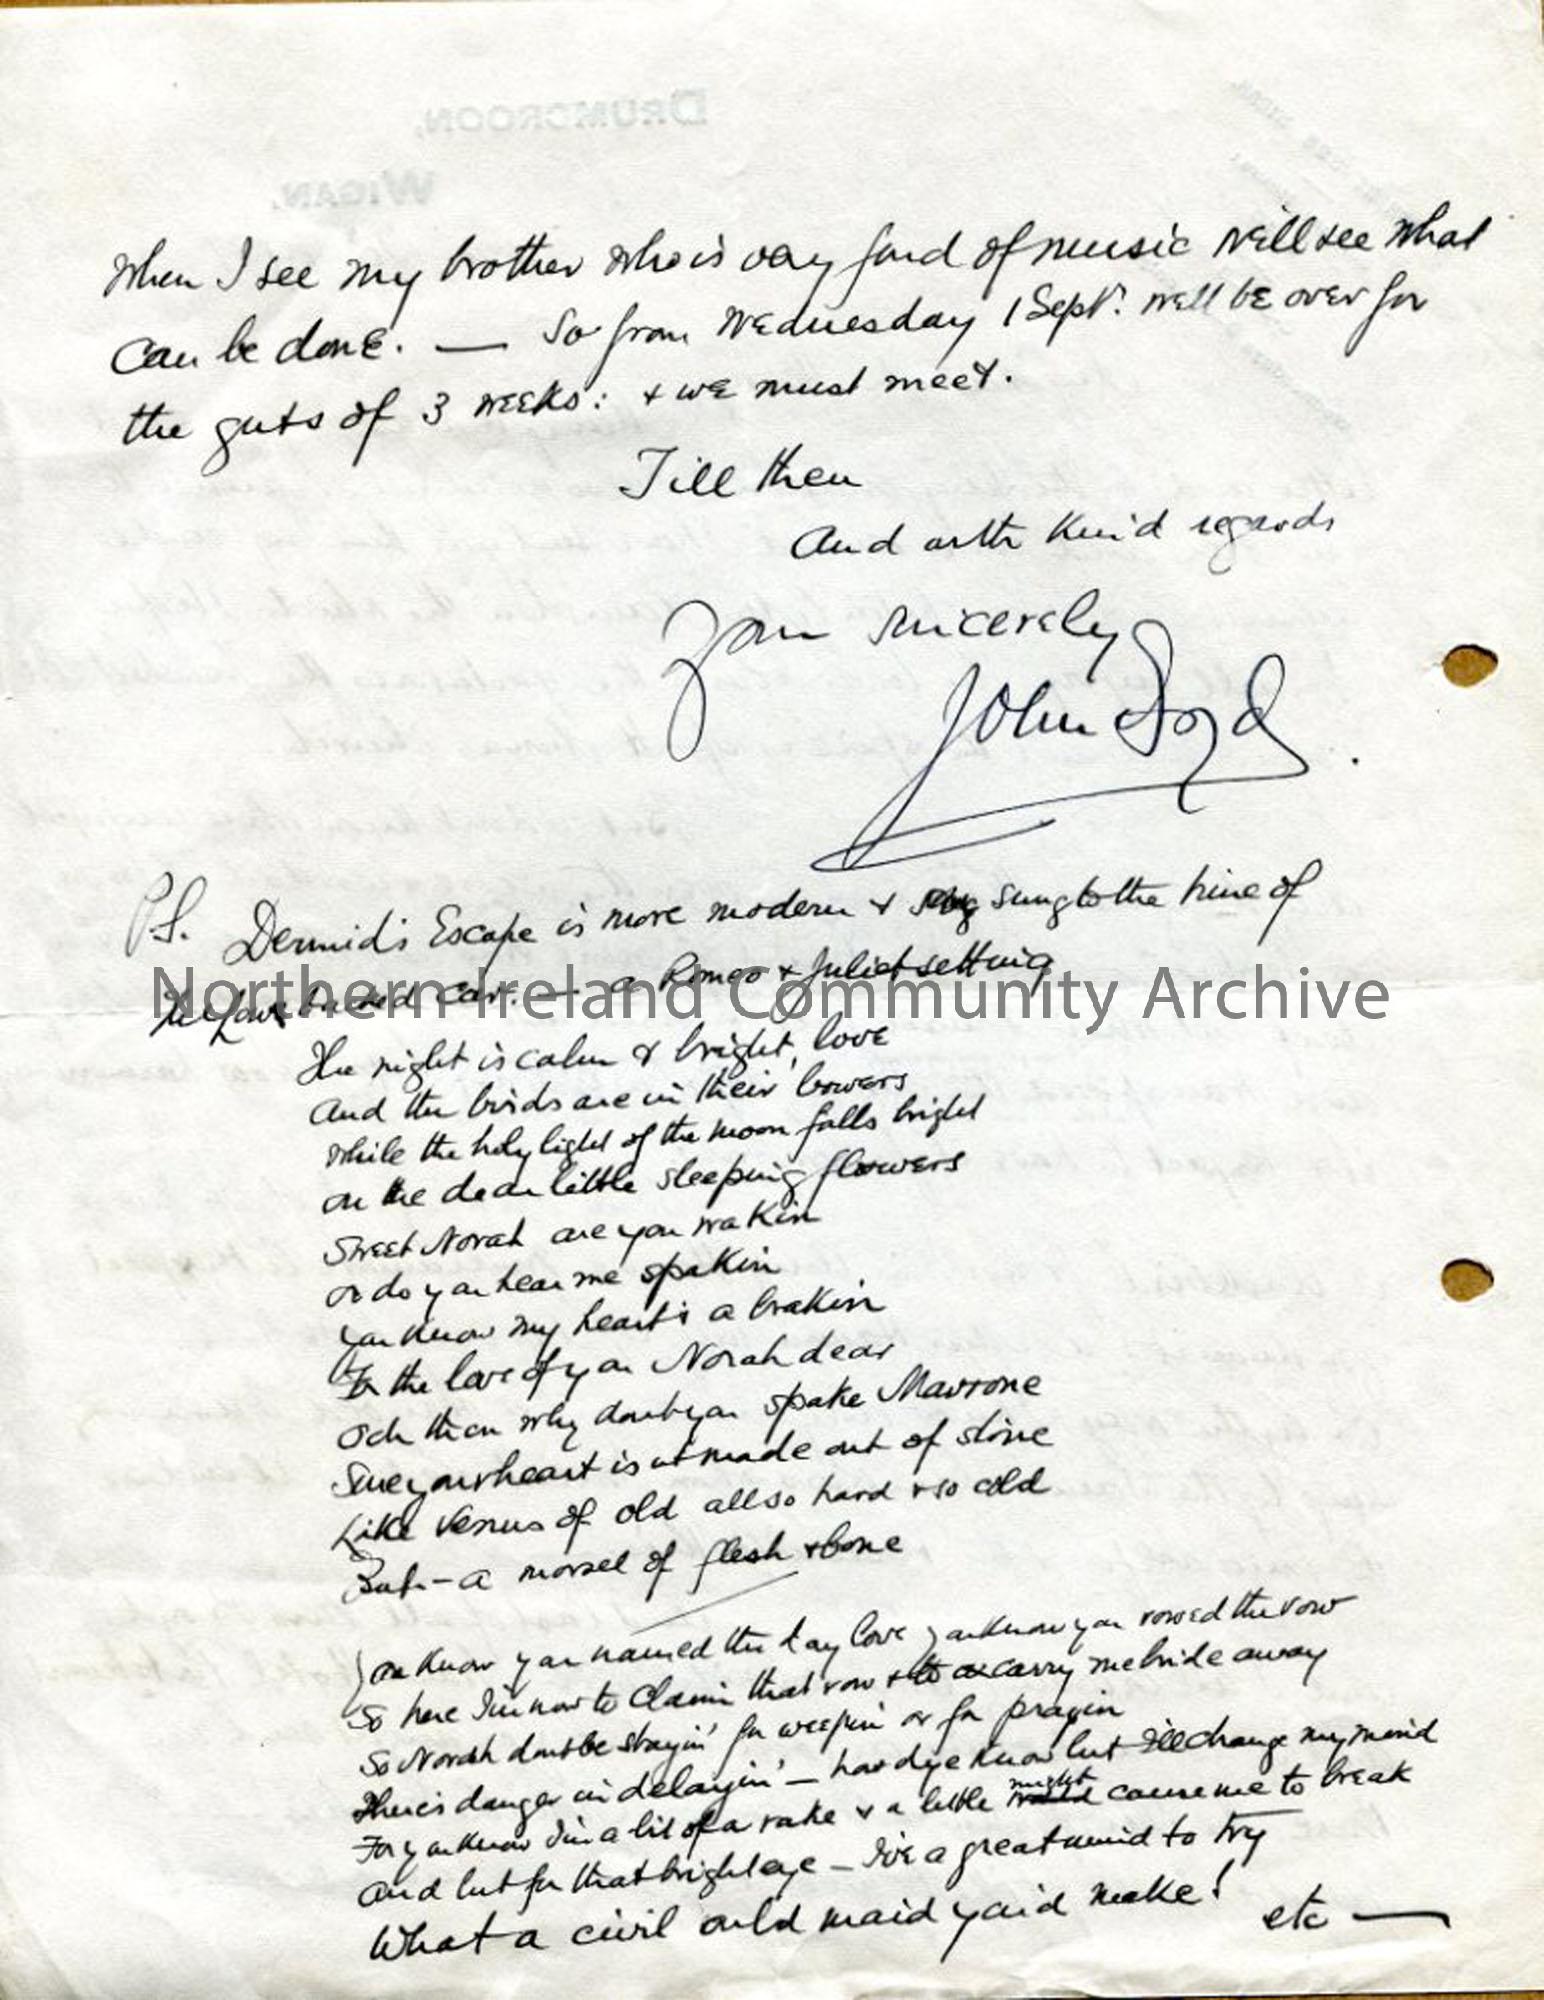 DRUMCROON,
WIGAN.
When I see my brother who is very fond of music will see what
can be done. — So from Wednesday 1 Sept. will be over for
the guts of 3 weeks: & we must meet.
Till then
And with kind regards
Your sincerely
John Boyd.
P.S. Dermid's Escape is more modern & sung to the tune of
The Low backed car. — a Romeo & Juliet setting
Northern Ireland Community Archive
The night is calm & bright, love
And the birds are in their bowers
While the holy light of the moon falls bright
on the dear little sleeping flowers
Sweet Norah are you wakin
or do you hear me spakin
you know my heart's a brakin
For the love of you Norah dear
Och then why don't you spake Mavrone
Sure your heart is not made out of stone
Like Venus of old all so hard & so cold
But - a morsel of flesh & bone
You know you named the day love you know you vowed the vow
So here I'm now to claim that vow & to carry me bride away
So Norah don't be stayin' for weepin' or for prayin
There's danger in delayin' — how d'ye know but I'll change my mind
For you know I'm a bit of a rake & a little might cause me to break
And but for that bright eye — I've a great mind to try
What a civil ould maid you'd make! etc —